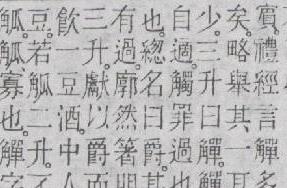 賓禮經言觶多
矣。略舉其一耳
少。三升曰觶。觶
自適觸罪過也
也。總名曰爵其
有過。廓然箸明
三升獻以爵而
飲一豆酒中人
豆。若觚二升不
觚。觚寡也。觶字